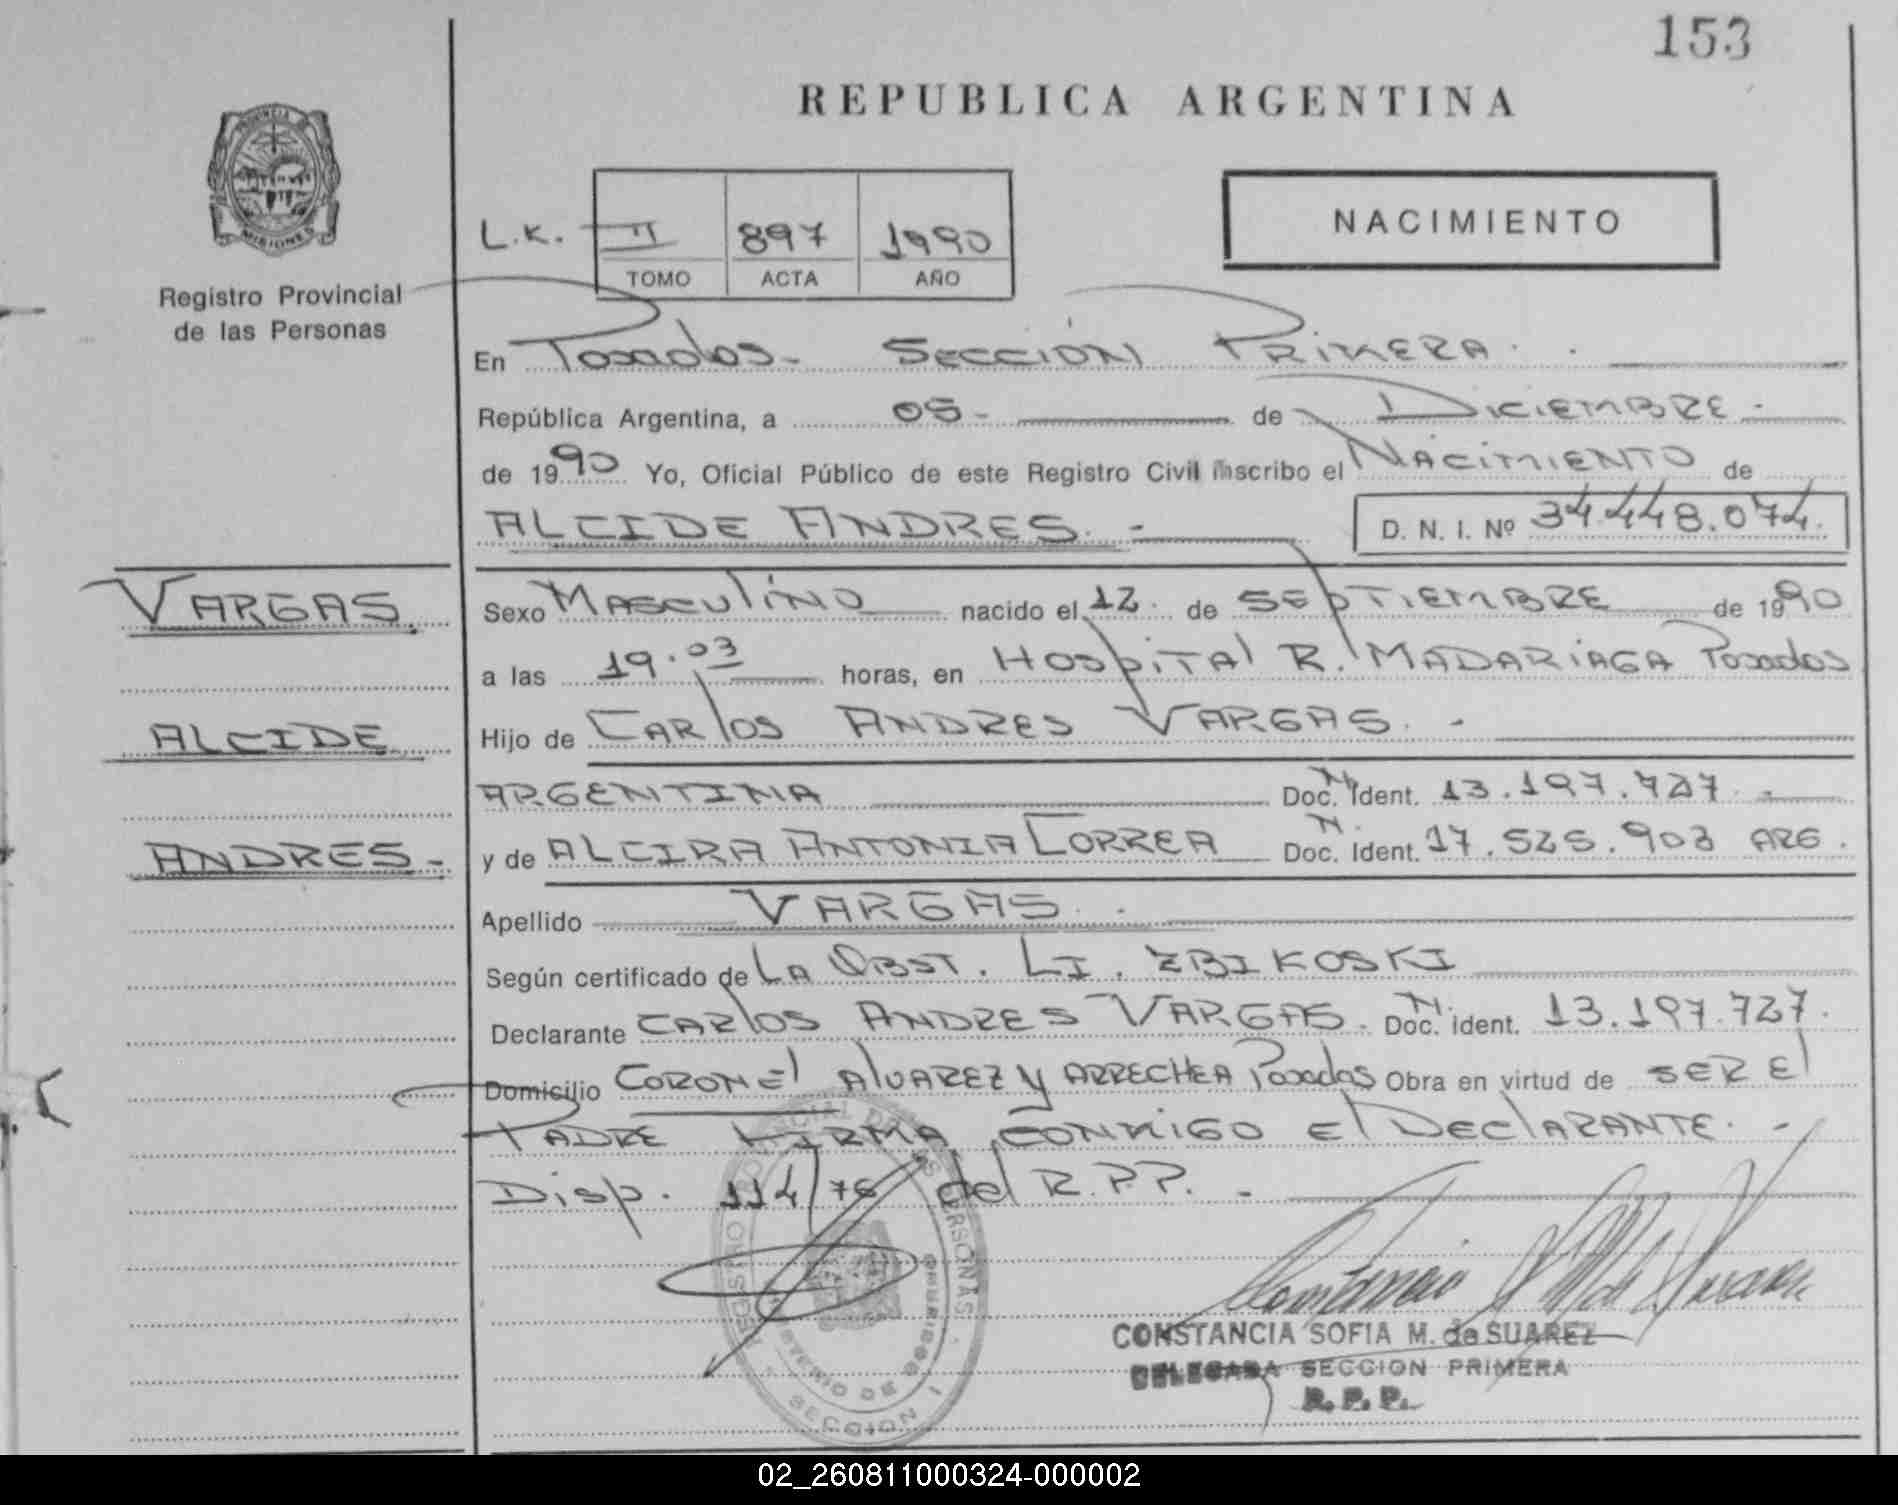 153
REPUBLICA ARGENTINA
PROVINCIA
MISIONES
Registro Provincial
de las Personas
L.K. II 897 1990
TOMO ACTA AÑO
NACIMIENTO
En Posadas - SECCIÓN PRIMERA.
República Argentina, a 05 - de DICIEMBRE -
de 1990 Yo, Oficial Público de este Registro Civil inscribo el NACIMIENTO de
ALCIDE ANDRES. - D. N. I. Nº 34.448.074.
VARGAS
Sexo MASCULINO nacido el 12. de SEPTIEMBRE de 1990
a las 19.03 horas, en HOSPITAL R. MADARIAGA Posadas
ALCIDE
Hijo de CARLOS ANDRES VARGAS. -
ARGENTINA Doc. N Ident. 13.197.727. -
ANDRES -
y de ALCIRA ANTONIA CORREA Doc. N. Ident. 17.525.903 ARG.
Apellido VARGAS. -
Según certificado de LA OBST. LI. ZBIKOSKI
Declarante CARLOS ANDRES VARGAS. Doc. N. ident. 13.197.727.
Domicilio CORONEL ALVAREZ y ARRECHEA Posadas Obra en virtud de SER EL
PADRE FIRMA CONMIGO EL DECLARANTE. -
Disp. 114/76 del R.P.P. -
CONSTANCIA SOFIA M. de SUAREZ
DELEGADA SECCION PRIMERA
R. P. P.
SECCION I
02_260811000324-000002